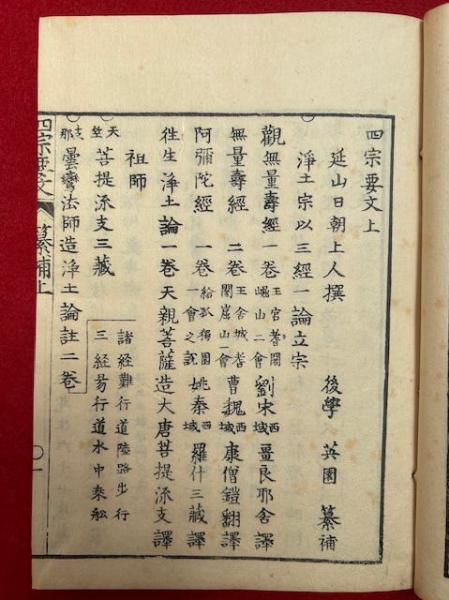 四宗要文上
延山日朝上人撰 後學 英園 纂補
淨土宗以三經一論立宗
觀無量壽經一卷 王宮耆闍崛山二會 劉宋西域畺良耶舍譯
無量壽經 二卷 王舍城耆闍崛山會 曹魏西域康僧鎧翻譯
阿彌陀經 一卷 給孤獨園一會之說 姚秦西域羅什三藏譯
往生淨土論一卷天親菩薩造大唐菩提流支譯
祖師
天竺 菩提流支三藏 諸經難行道陸路步行
支那 曇鸞法師造淨土論註二卷 三經易行道水中乘船
四宗要文 纂補上 〇一